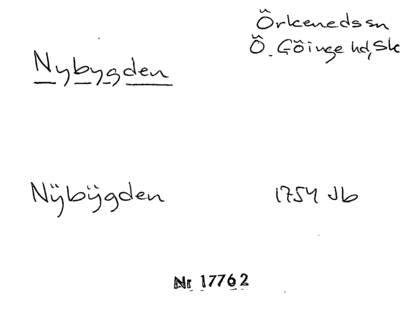 Örkenedssn
Ö. Göinge hd, Sk
Nybygden
Nÿbÿgden 1754 Jb
Nr 17762